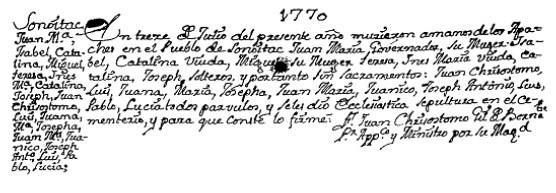 1770
Sonóitac
Juan Mª,
Isabel, Cata-
lina, Miguel,
teresa, Ines
Mª, Catalina,
Joseph, Juan
Chrisostomo,
Luis, Juana,
Mª, Josepha,
Juan Mª, Jua-
nico, Joseph
Antº, Luis, Pa-
blo, Lucia;
En trece de Junio del presente año murieron a manos de los Apa-
ches en el Pueblo de Sonóitac Juan Maria, Governador, su Muger Isa-
bel, Catalina Viuda, Miguel su Muger Teresa, Ines Maria Viuda, Ca-
talina, Joseph, solteros, y por tanto sin Sacramentos: Juan Chrisostomo,
Luis, Juana, Maria, Josepha, Juan Maria, Juanico, Joseph Antonio, Luis,
Pablo, Lucia todos parvulos, y se les dió Ecclesiastica sepultura en el Ce-
menterio, y para que conste lo firmé. Fr. Juan Chrisostomo Gil de Berna-
Pr. Appco y Ministro por su Magd